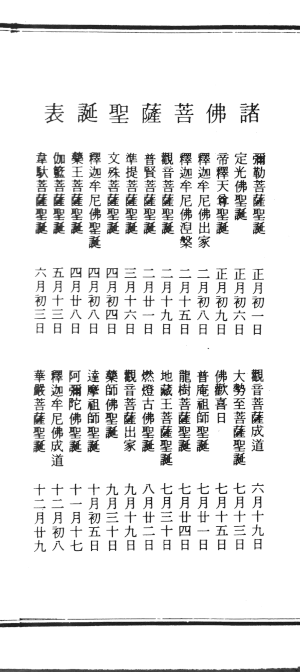 諸佛菩薩聖誕表
彌勒菩薩聖誕 正月初一日
定光佛聖誕 正月初六日
帝釋天尊聖誕 正月初九日
釋迦牟尼佛出家 二月初八日
釋迦牟尼佛涅槃 二月十五日
觀音菩薩聖誕 二月十九日
普賢菩薩聖誕 二月廿一日
準提菩薩聖誕 三月十六日
文殊菩薩聖誕 四月初四日
釋迦牟尼佛聖誕 四月初八日
藥王菩薩聖誕 四月廿八日
伽籃菩薩聖誕 五月十三日
韋馱菩薩聖誕 六月初三日
觀音菩薩成道 六月十九日
大勢至菩薩聖誕 七月十三日
佛歡喜日 七月十五日
普庵祖師聖誕 七月廿一日
龍樹菩薩聖誕 七月廿四日
地藏王菩薩聖誕 七月三十日
燃燈古佛聖誕 八月廿二日
觀音菩薩出家 九月十九日
藥師佛聖誕 九月三十日
達摩祖師聖誕 十月初五日
阿彌陀佛聖誕 十一月十七
釋迦牟尼佛成道 十二月初八
華嚴菩薩聖誕 十二月廿九